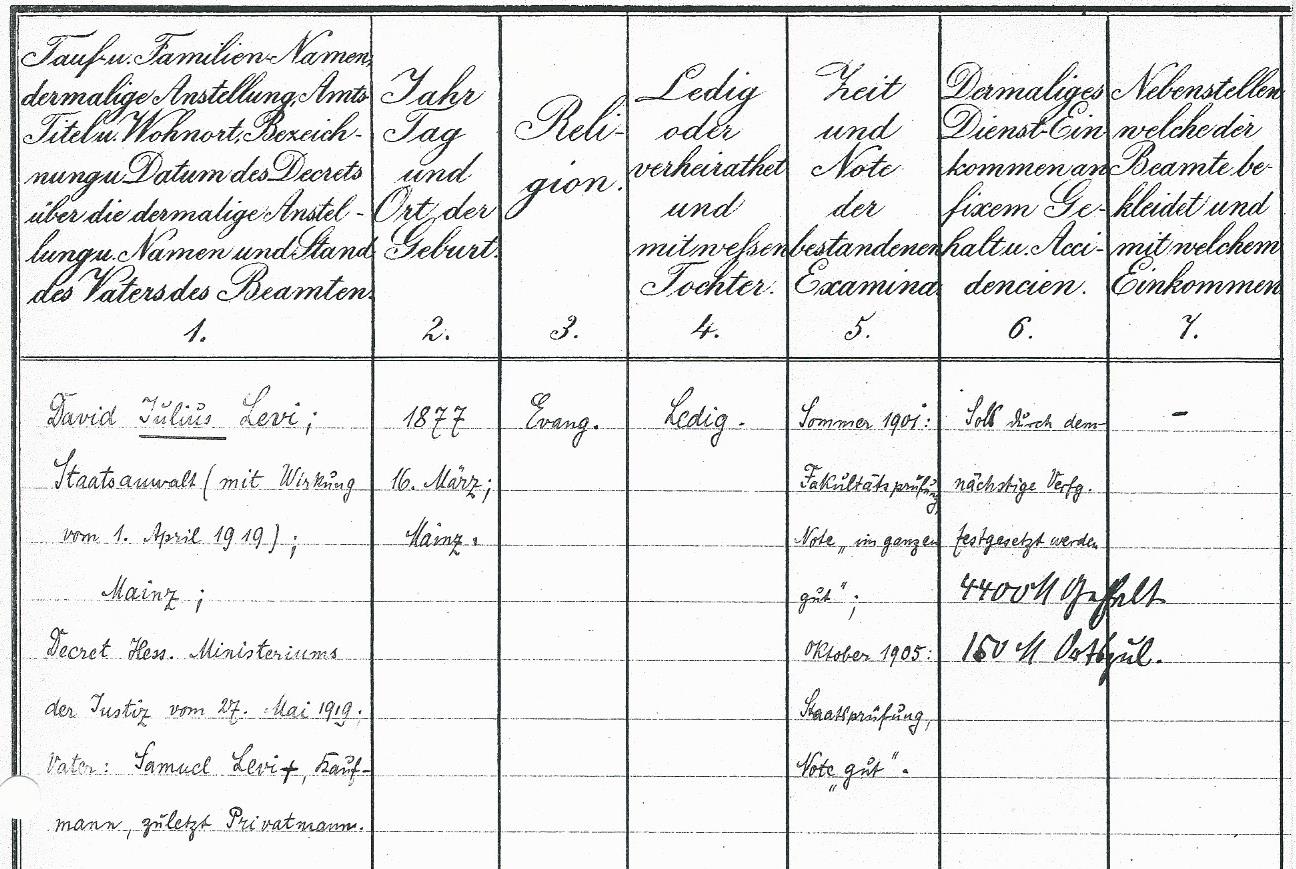 Tauf- u. Familien-Namen,
dermalige Anstellung, Amts-
Titel u. Wohnort, Bezeich-
nung u. Datum des Decrets
über die dermalige Anstel-
lung u. Namen und Stand
des Vaters des Beamten.
1.
Jahr
Tag
und
Ort der
Geburt.
2.
Reli-
gion.
3.
Ledig
oder
verheirathet
und
mit wessen
Tochter.
4.
Zeit
und
Note
der
bestandenen
Examina.
5.
Dermaliges
Dienst-Ein
kommen an
fixem Ge-
halt u. Acci-
dencien.
6.
Nebenstellen
welche der
Beamte be-
kleidet und
mit welchem
Einkommen
7.
David Julius Levi;
Staatsanwalt (mit Wirkung
vom 1. April 1919);
Mainz;
Decret Hess. Ministeriums
der Justiz vom 27. Mai 1919;
Vater: Samuel Levi +, Kauf-
mann, zuletzt Privatmann.
1877
16. März;
Mainz.
Evang.
Ledig.
Sommer 1901:
Fakultätsprüfung,
Note „im ganzen
gut";
Oktober 1905:
Staatsprüfung,
Note „gut".
Soll durch dem-
nächstige Verfg.
festgesetzt werden
4400 M Gehalt
150 M Ortszul.
-